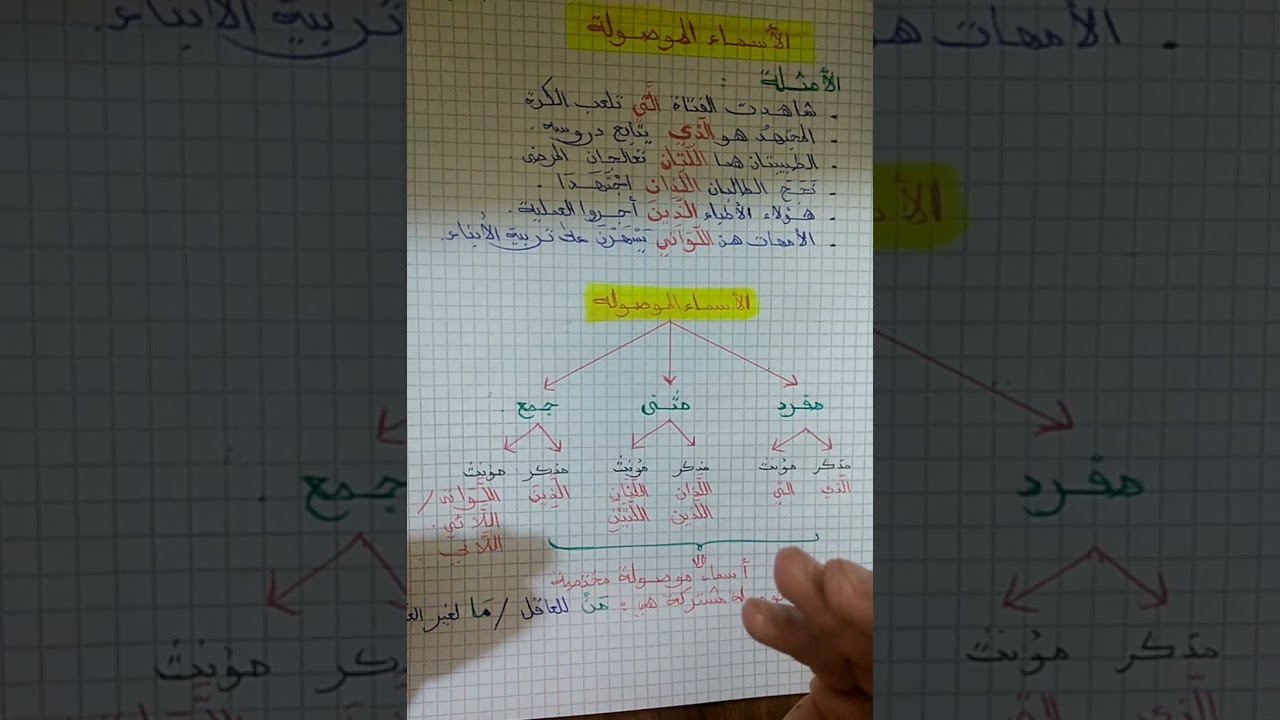 الأسماء الموصولة
الأمثلة :
. شاهدت الفتاة الَّتِي تلعب الكرة
. المجتهدُ هو الَّذِي يتابع دروسه .
. الطبيبتان هما اللَّتَان تعالجان المرضى .
. نَجَحَ الطالبان اللَّذَان اِجْتَهَدَا .
. هؤلاء الأطباء الَّذِينَ أجروا العملية .
. الأمهات هن اللَّوَاتِي يَسْهَرْنَ على تربية الأبناء.
الأسماء الموصولة
مفرد مثنى جمع
مذكر مؤنث مذكر مؤنث مذكر مؤنث
الَّذي التي اللَّذان اللَّتان الَّذِينَ اللَّواتي /
اللَّذين اللَّتَيْن اللَّائي .
اللَّاتي
أسماء موصولة مختصة
مشتركة هي : مَنْ للعاقل / مَا لغير